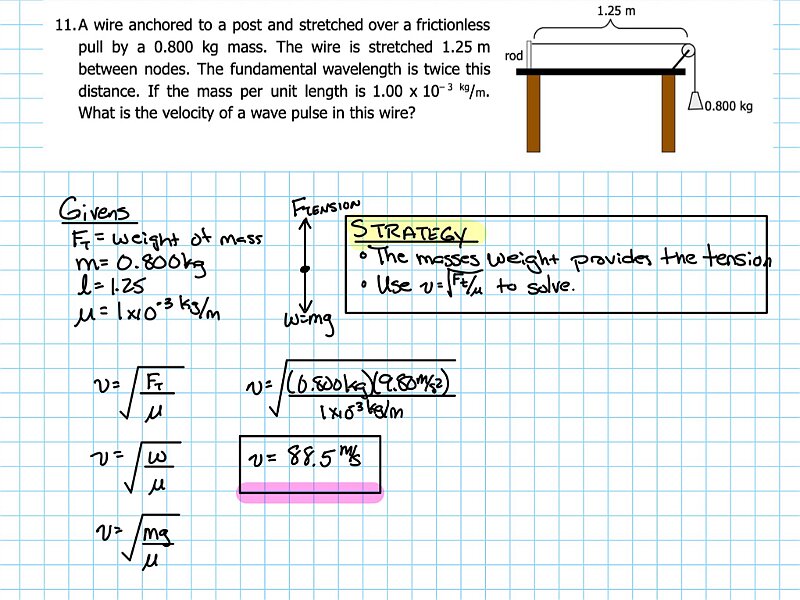 11. A wire anchored to a post and stretched over a frictionless
pull by a 0.800 kg mass. The wire is stretched 1.25 m
between nodes. The fundamental wavelength is twice this
distance. If the mass per unit length is 1.00 x 10⁻³ kg/m.
What is the velocity of a wave pulse in this wire?
1.25 m
rod
0.800 kg
Givens
F_T = weight of mass
m = 0.800kg
l = 1.25
μ = 1x10⁻³ kg/m
FTENSION
w=mg
STRATEGY
• The masses weight provides the tension
• Use v=√Ft/μ to solve.
v = √F_T/μ
v = √w/μ
v = √mg/μ
v = √(0.800kg)(9.80m/s²)/1x10⁻³ kg/m
v = 88.5 m/s